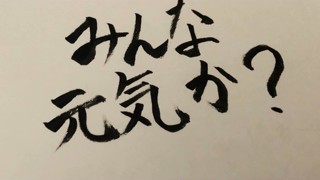 みんな
元気か?